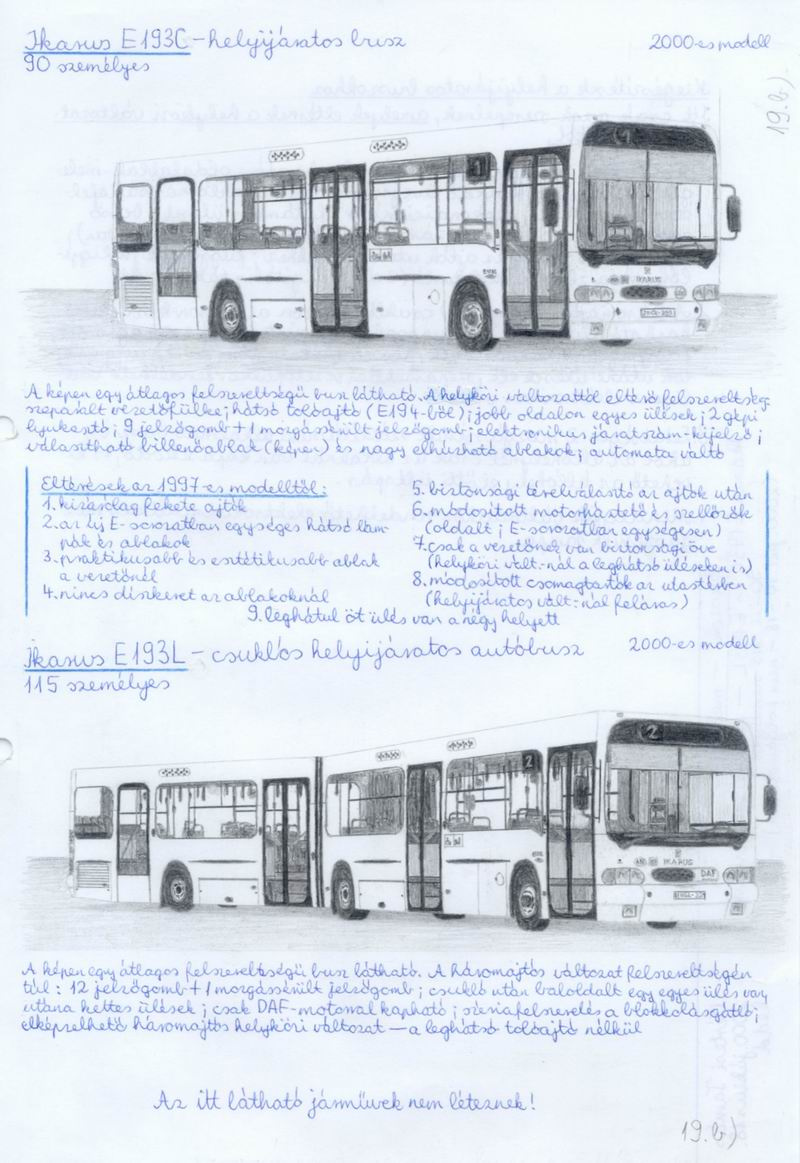 Ikarus E193C – helyijáratos busz
2000-es modell
90 személyes
19.b).
1
1
IKARUS
A képen egy átlagos felszereltségű busz látható. A helyköri változattól eltérő felszereltség:
szeparált vezetőfülke; hátsó tolóajtó (E194-ből); jobb oldalon egyes ülések; 2 gépi
lyukasztó; 9 jelzőgomb + 1 mozgássérült jelzőgomb; elektronikus járatszám-kijelző;
választható billenőablak (képen) és nagy elhúzható ablakok; automata váltó
Eltérések az 1997-es modelltől:
1. kizárólag fekete ajtók
2. az új E-sorozatban egységes hátsó lám-
pák és ablakok
3. praktikusabb és esztétikusabb ablak
a vezetőnél
4. nincs díszkeret az ablakoknál
5. biztonsági térelválasztó az ajtók után
6. módosított motorháztető és szellőzők
(oldalt; E-sorozatban egységesen)
7. csak a vezetőnek van biztonsági öve
(helyköri vált.-nál a leghátsó üléseken is)
8. módosított csomagtartók az utastérben
(helyijáratos vált.-nál feláras)
9. leghátul öt ülés van a négy helyett
Ikarus E193L – csuklós helyijáratos autóbusz
2000-es modell
115 személyes
2
2
IKARUS
DAF
A képen egy átlagos felszereltségű busz látható. A háromajtós változat felszereltségén
túl: 12 jelzőgomb + 1 mozgássérült jelzőgomb; csukló után baloldalt egy egyes ülés van,
utána kettes ülések; csak DAF-motorral kapható; szériafelszerelés a blokkolásgátló;
elképzelhető háromajtós helyköri változat — a leghátsó tolóajtó nélkül
Az itt látható járművek nem léteznek!
19.b)